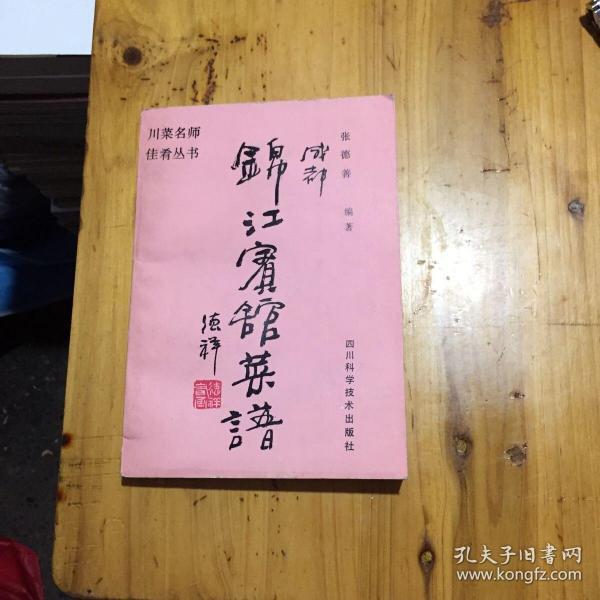 川菜名师
佳肴丛书
张德善 编著
成都
錦江賓館菜譜
德祥
四川科学技术出版社
孔夫子旧书网
www.kongfz.com